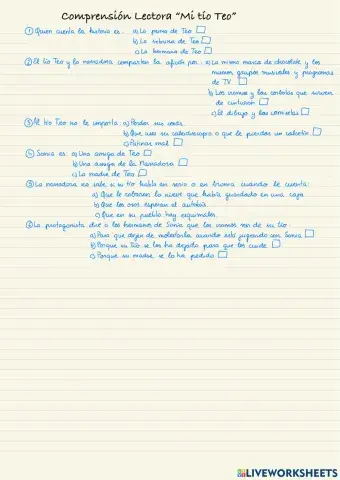 Comprensión Lectora "Mi tío Teo"
① Quien cuenta la historia es: a) La prima de Teo
b) La sobrina de Teo
c) La hermana de Teo
② El tío Teo y la narradora comparten la afición por: a) La misma marca de chocolate y los
mismos grupos musicales y programas
de TV.
b) Los cromos y las
de cinturón
c) El dibujo y las cometas
③ Al tío Teo no le importa: a) Perder sus
b) Que use su calcetines o que le pierdas un calcetín
c) Patinar mal
④ Sonia es: a) Una amiga de Teo
b) Una amiga de la Narradora
c) La madre de Teo
⑤ La narradora no sabe si su tío habla en serio o en broma cuando le cuenta:
a) Que le robaron la nieve que había guardado en una caja
b) Que los osos esperan el autobús
c) Que en su pueblo hay esquimales.
⑥ La protagonista dice a los hermanos de Sonia que los cromos son de su tío:
a) Para que dejen de molestarla cuando está jugando con Sonia
b) Porque su tío se los ha dejado para que los cuide
c) Porque su madre se lo ha pedido
LIVEWORKSHEETS